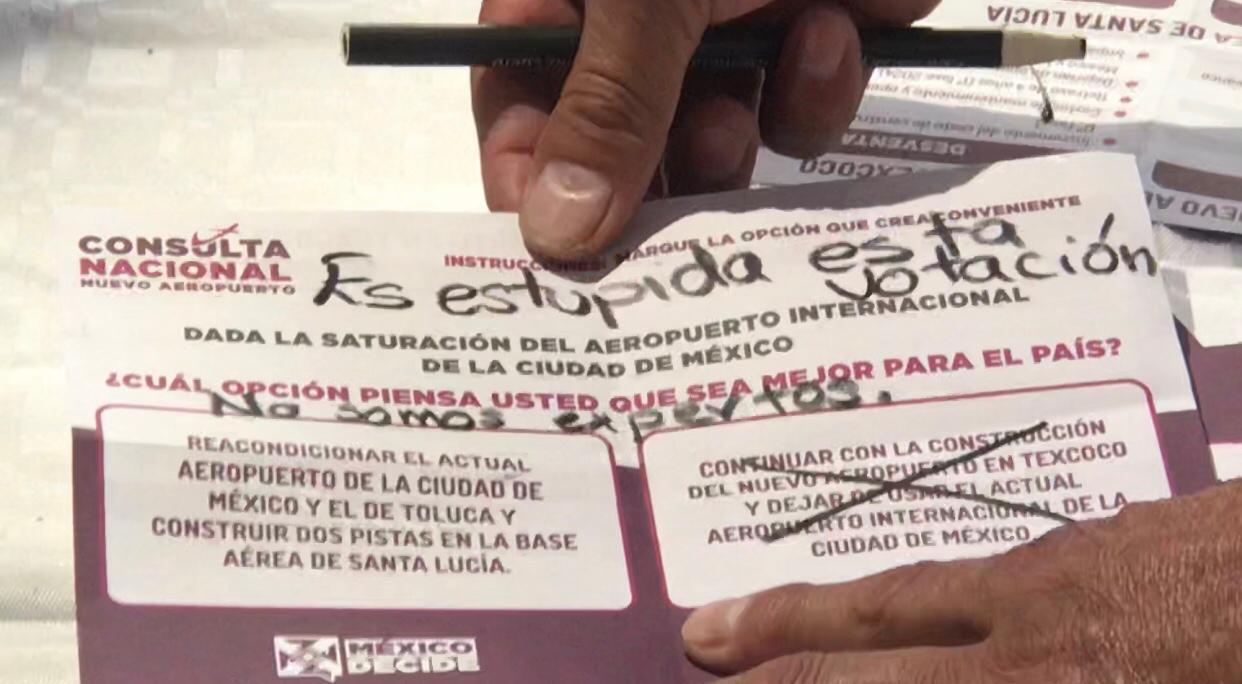 CONSULTA
NACIONAL
NUEVO AEROPUERTO
MARQUE LA OPCIÓN QUE CREA CONVENIENTE
Es estupida esta
votación
DADA LA SATURACIÓN DEL AEROPUERTO INTERNACIONAL
DE LA CIUDAD DE MÉXICO
¿CUÁL OPCIÓN PIENSA USTED QUE SEA MEJOR PARA EL PAÍS?
No somos expertos.
REACONDICIONAR EL ACTUAL
AEROPUERTO DE LA CIUDAD DE
MÉXICO Y EL DE TOLUCA Y
CONSTRUIR DOS PISTAS EN LA BASE
AÉREA DE SANTA LUCÍA.
CONTINUAR CON LA CONSTRUCCIÓN
DEL NUEVO AEROPUERTO EN TEXCOCO
Y DEJAR DE USAR EL ACTUAL
AEROPUERTO INTERNACIONAL DE LA
CIUDAD DE MÉXICO
MÉXICO
DECIDE
DE SANTA LUCÍA
DESVENTA